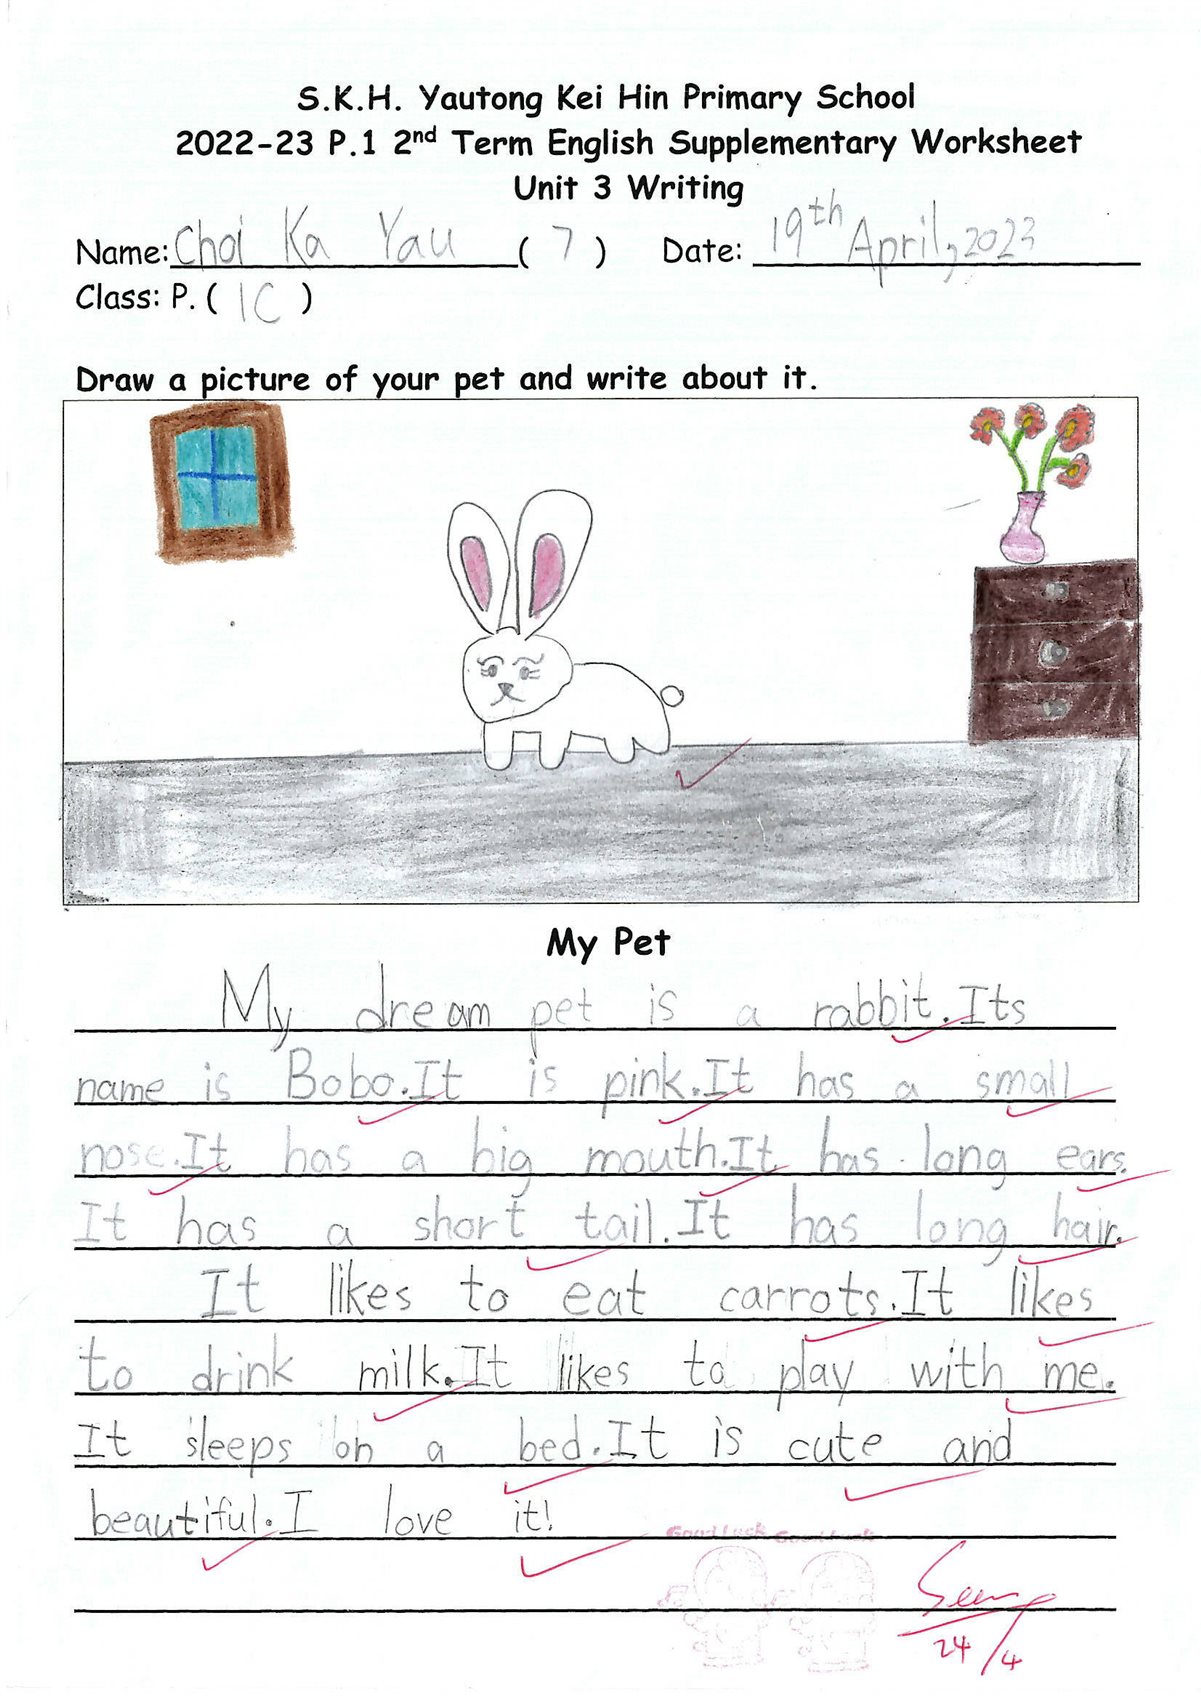 S.K.H. Yautong Kei Hin Primary School
2022-23 P.1 2nd Term English Supplementary Worksheet
Unit 3 Writing
Name: Choi Ka Yau ( 7 ) Date: 19th April, 2023
Class: P. ( 1C )
Draw a picture of your pet and write about it.
My Pet
My dream pet is a rabbit. Its
name is Bobo. It is pink. It has a small
nose. It has a big mouth. It has long ears.
It has a short tail. It has long hair.
It likes to eat carrots. It likes
to drink milk. It likes to play with me.
It sleeps on a bed. It is cute and
beautiful. I love it!
Good Luck Good Luck
24/4